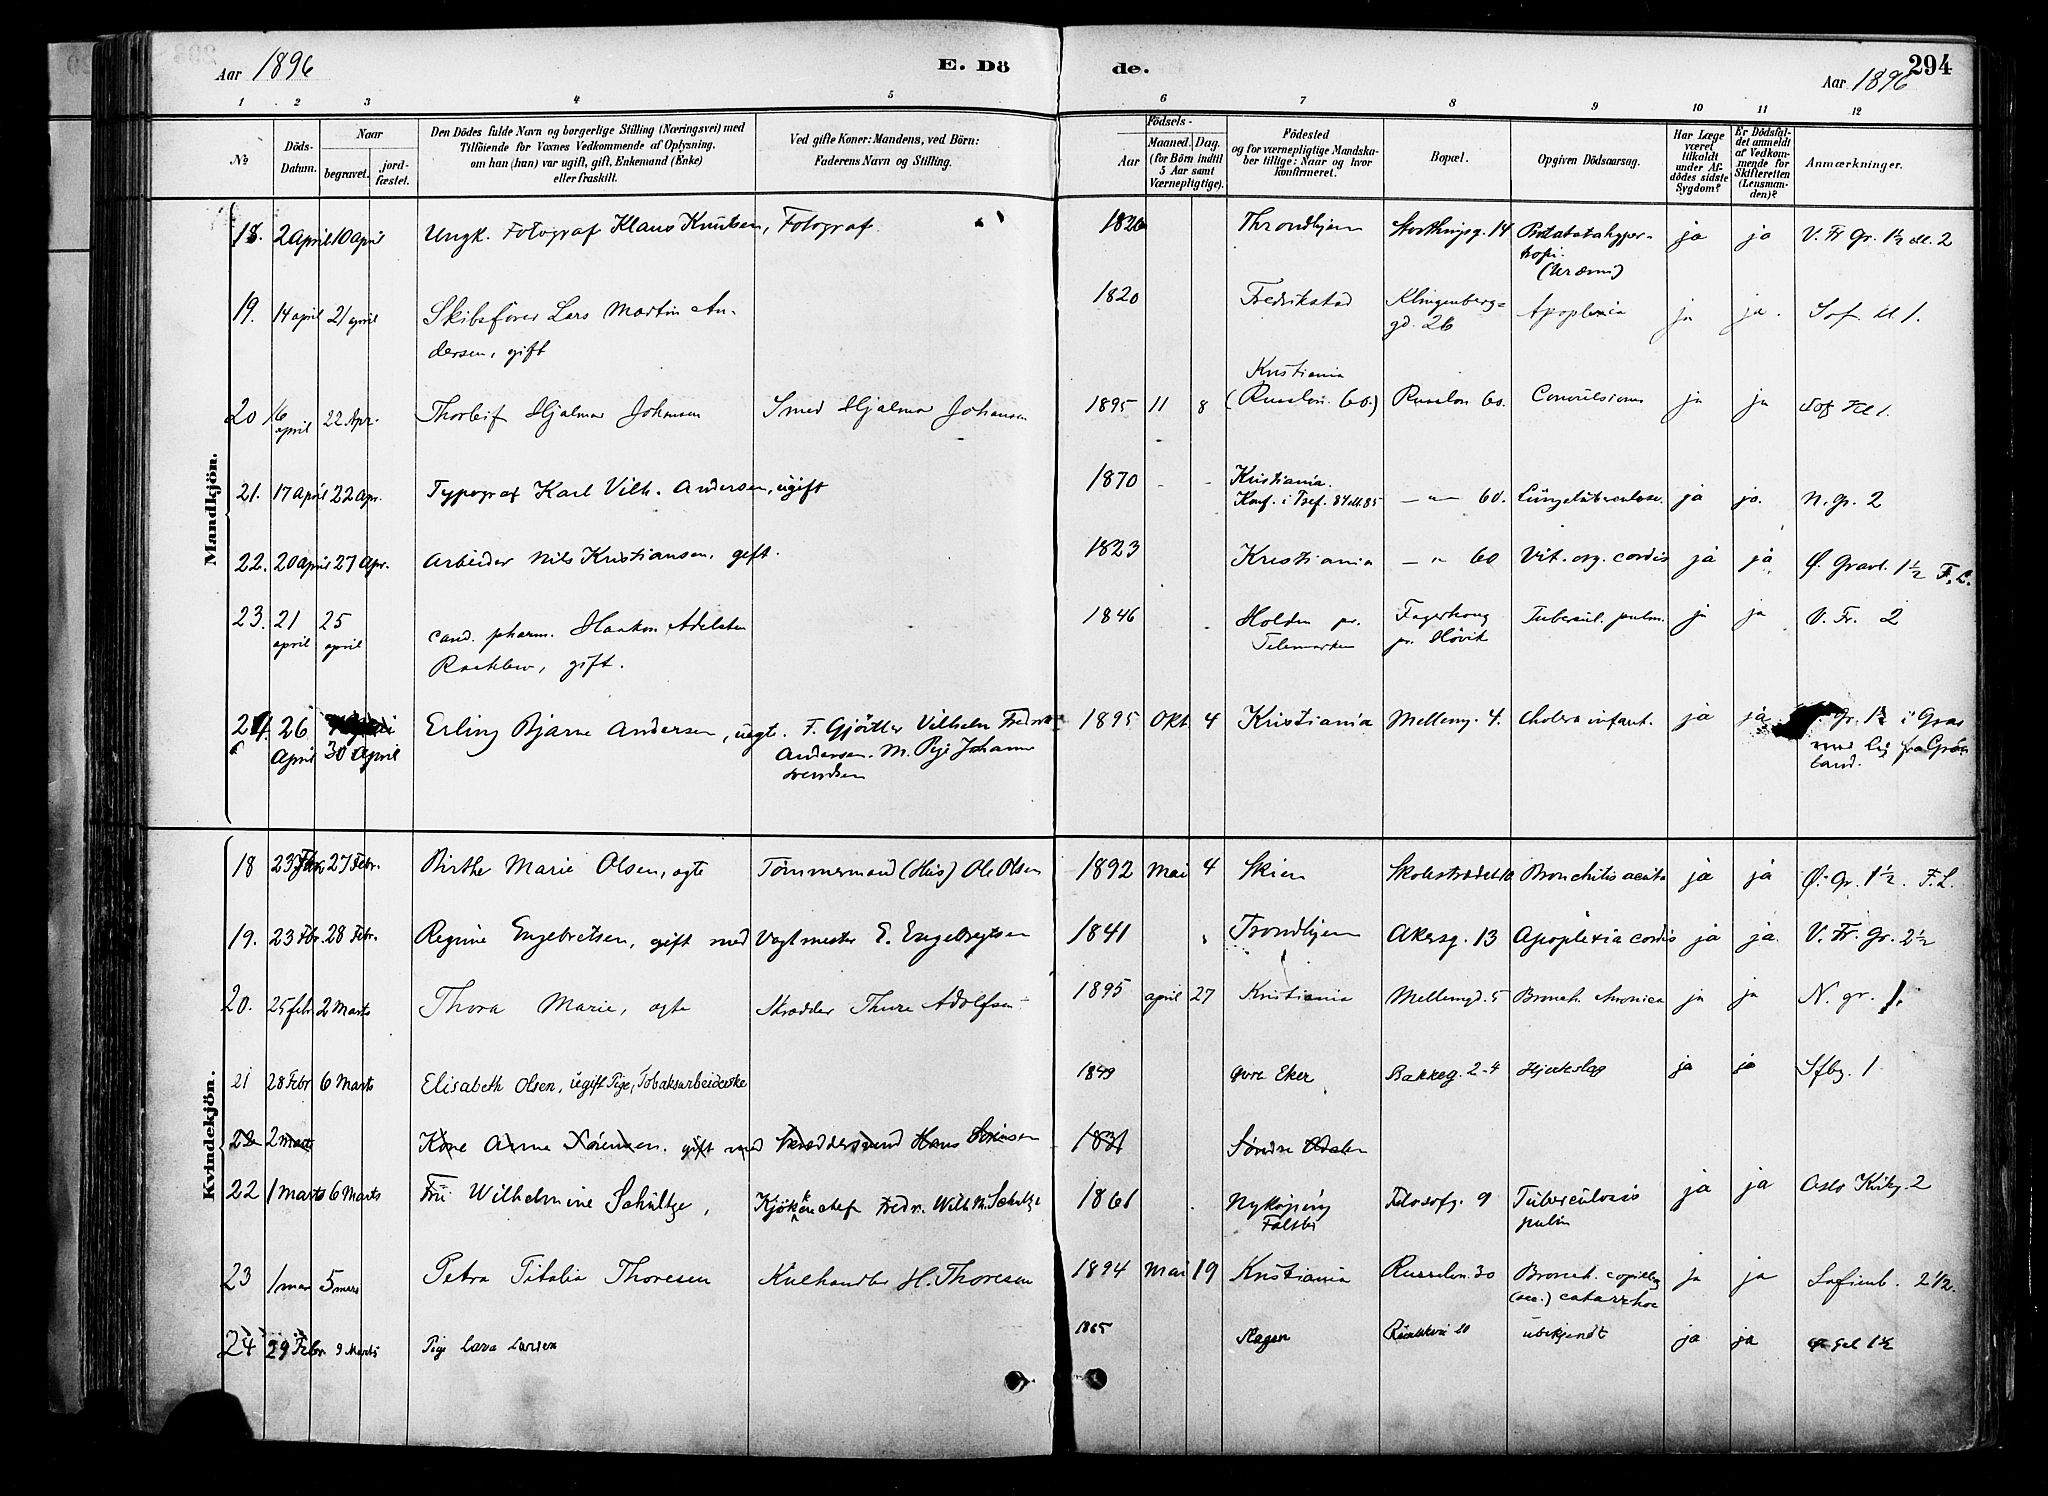 Aar 1896
E. Dö de.
294
Aar 1896
1 2 3 4 5 6 7 8 9 10 11 12
№
Döds-Datum.
Naar
begravet.
jord-fæstet.
Den Dödes fulde Navn og borgerlige Stilling (Næringsvei) med
Tilföiende for Voxnes Vedkommende af Oplysning,
om han (hun) var ugift, gift, Enkemand (Enke)
eller fraskilt.
Ved gifte Koner: Mandens, ved Börn:
Faderens Navn og Stilling.
Födsels-
Aar
Maaned. Dag.
(for Börn indtil
5 Aar samt
Værnepligtige).
Födested
og for værnepligtige Mandska-
ber tillige: Naar og hvor
konfirmeret.
Bopæl.
Opgiven Dödsaarsag.
Har Læge
været
tilkaldt
under Af-
dödes sidste
Sygdom?
Er Dödsfal-
det anmeldt
af Vedkom-
mende for
Skifteretten
(Lensman-
den)?
Anmærkninger.
Mandkjön.
18. 2 April 10 April Ungk. Fotograf Klaus Knudsen, Fotograf 1826 Throndhjem Storthingsg. 14 ja ja V. Fr Gr. 1½ 2
(Uræmi)
19. 14 april 21 april Skibsfører Lars Martin An-
dersen, gift 1820 Fredrikstad Klingenberg-
gd. 2b Apoplexia ja ja. Sof. kl 1.
20 16 april 22 Apr. Thorleif Hjalmar Johansen Smed Hjalmar Johansen 1895 11 8 Kristiania
(Russlön. 60.) Russlön 60. Convulsiones ja ja Sof Kl 1.
21. 17 April 22 Apr. Typograf Karl Vilh. Andersen, ugift 1870 - - Kristiania.
Konf. i 85 — " — 60. Lungetuberculose. ja ja. N. gr. 2
22. 20 April 27 Apr. Arbeider Nils Kristiansen, gift. 1823 Kristiania — " 60 Vit. org. cordis ja ja Ø. Gravl. 1½ F. L.
23. 21 april 25 april cand. pharm. Haakon Adelsten
gift. 1846 Holden pr.
Telemarken
pr. Høvik Tubercul. pulm. ja ja V. Fr. 2
24. 26 April 30 April Erling Bjarne Andersen, uegt. F. Gjörtler Vilhelm Fredrik
Andersen. M. Pige Johanne
Svendsen 1895 Okt 4 Kristiania Mellemg. 4. Cholera infant. ja ja Gr. 1½ i Grav
med lig fra Grön
land.
Kvindekjön.
18 23 Febr 27 Febr. Birthe Marie Olsen, ægte Tömmermand Ole Olsen 1892 Mai 4 Skien Skolestrædet 10 Bronchitis acuta ja ja Ø. Gr. 1½. F. L.
19. 23 Fbr. 28 Febr. Regine Engebretsen, gift med Vagtmester E. Engebregtsen 1841 Trondhjem Akersg. 13 Apoplexia cordis ja ja V. Fr. Gr. 2½
20. 25 febr 2 Marts Thora Marie, ægte Skrædder Thure Adolfsen 1895 april 27 Kristiania Mellemgd. 5 Bronch. chronica ja ja N. gr. 1.
21 28 Febr 6 Marts Elisabeth Olsen, ugift Pige, Tobaksarbeiderske 1849 Øvre Eker Bakkeg. 2-4 Hjerteslag ja ja Sfbg. 1
22 2 marts Kone Anne Sörensen. gift med Skræddersvend Hans Sörensen 1831 Søndre Odalen
22 1 Marts 6 Marts Frü Wilhelmine Schultze, Kjökkenchef Fredr. Wilh M. Schultze 1861 Nykøping
Falster Filosofg. 9 Tuberculosis
pulm ja ja Oslo Kirkg. 2
23 1 mars 5 mars Petra Titalia Thoresen Kulhandler H. Thoresen 1894 Mai 19 Kristiania Russelön. 30 Bronch. capillaris
(sec.) catarrhoe ja ja Sofienb. 2 1/2.
24 29 Febr 9 Marts Pige Lava Larsen 1865 20 übekjendt ja ja 1½